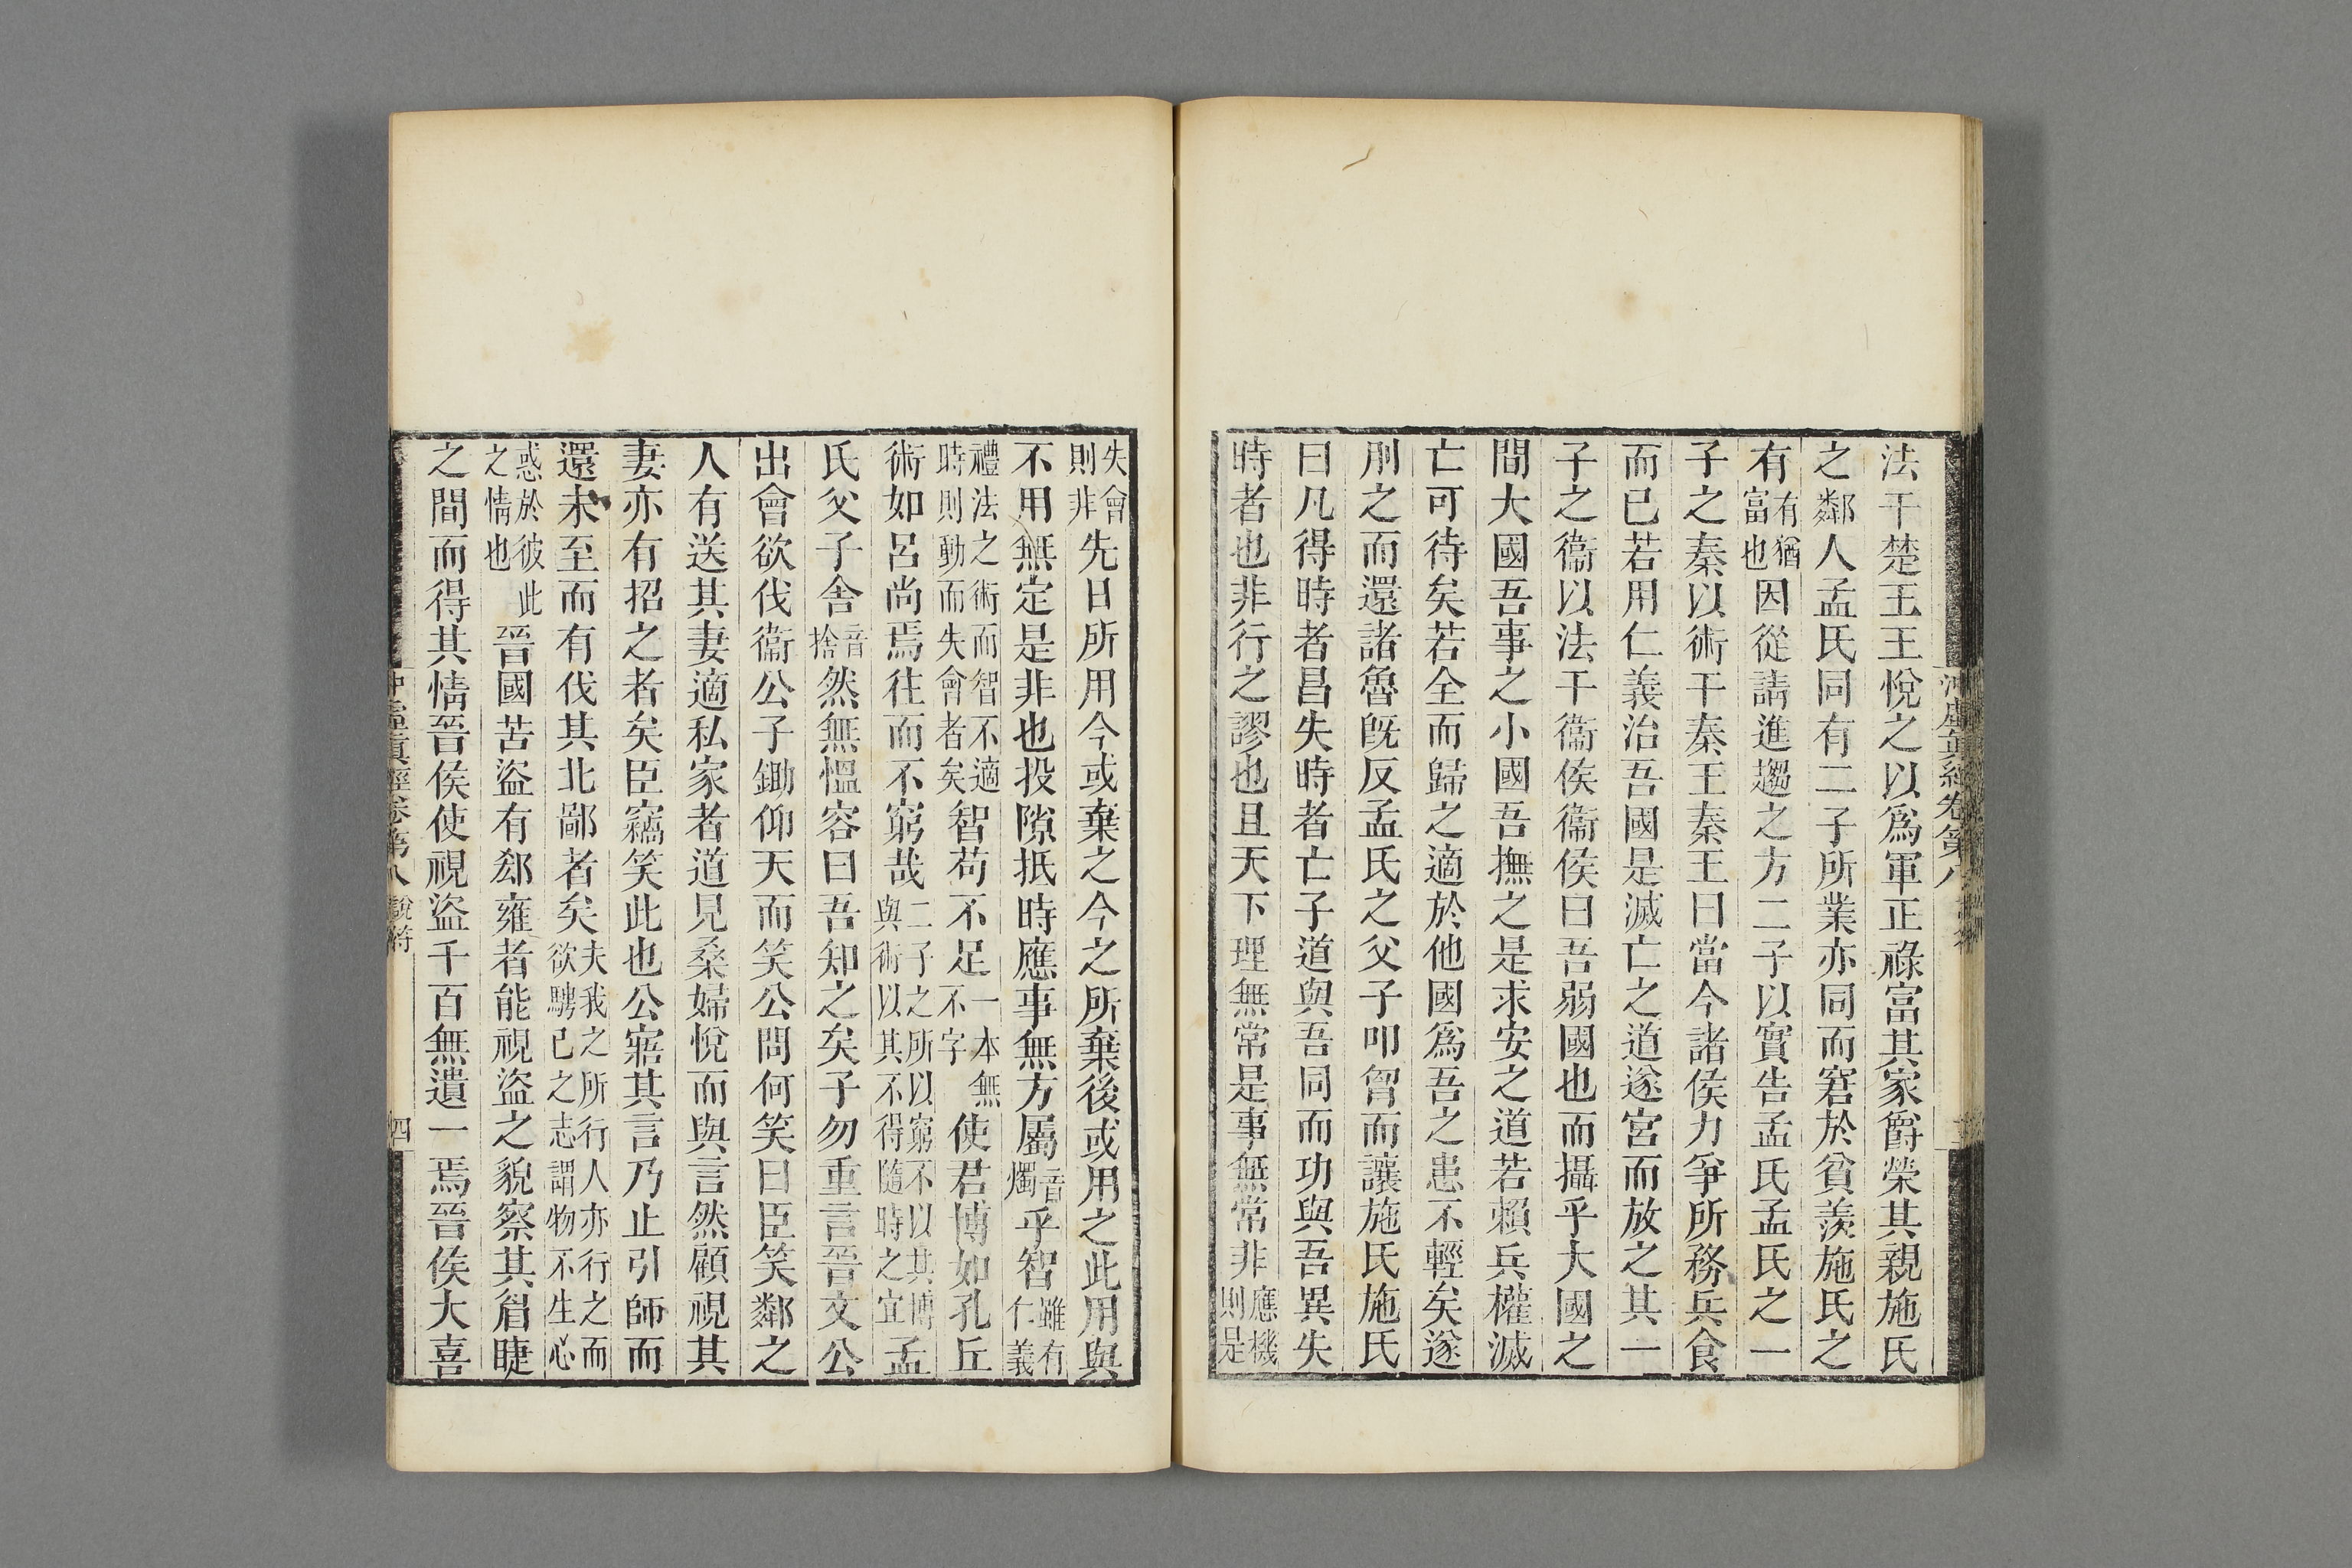 法干楚王王悅之以爲軍正祿富其家爵榮其親施氏
之鄰人孟氏同有二子所業亦同而窘於貧羨施氏之
有有猶富也因從請進趨之方二子以實告孟氏孟氏之一
子之秦以術干秦王秦王曰當今諸侯力爭所務兵食
而已若用仁義治吾國是滅亡之道遂宮而放之其一
子之衞以法干衞侯衞侯曰吾弱國也而攝乎大國之
間大國吾事之小國吾撫之是求安之道若賴兵權滅
亡可待矣若全而歸之適於他國爲吾之患不輕矣遂
刖之而還諸魯旣反孟氏之父子叩胷而讓施氏施氏
曰凡得時者昌失時者亡子道與吾同而功與吾異失
時者也非行之謬也且天下理無常是事無常非應機則是
失會則非先日所用今或棄之今之所棄後或用之此用與
不用無定是非也投隙抵時應事無方屬音燭乎智雖有仁義
禮法之術而智不適時則動而失會者矣智苟不足一本無不字使君博如孔丘
術如呂尚焉往而不窮哉二子之所以窮不以其博與術以其不得隨時之宜孟
氏父子舍音捨然無慍容曰吾知之矣子勿重言晉文公
出會欲伐衞公子鋤仰天而笑公問何笑曰臣笑鄰之
人有送其妻適私家者道見桑婦悅而與言然顧視其
妻亦有招之者矣臣竊笑此也公寤其言乃止引師而
還未至而有伐其北鄙者矣夫我之所行人亦行之而欲騁已之志謂物不生心
惑於彼此之情也晉國苦盜有郄雍者能視盜之貌察其眉睫
之間而得其情晉侯使視盜千百無遺一焉晉侯大喜
沖虛眞經卷第八 說符 四